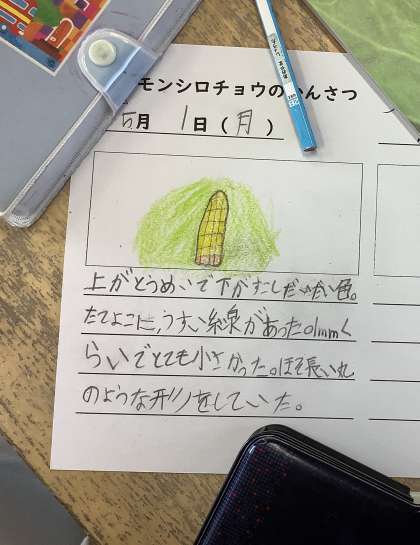 モンシロチョウのかんさつ
5月 1日(月)
上がとうめいで下がすこしだいだい色。
たてよこに、うすい線があった。1mmく
らいでとても小さかった。ほそ長い丸
のような形をしていた。